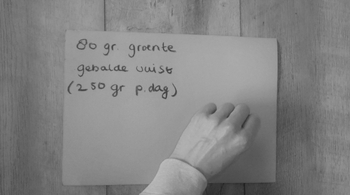 80 gr. groente
gebalde vuist
(250 gr p.dag)